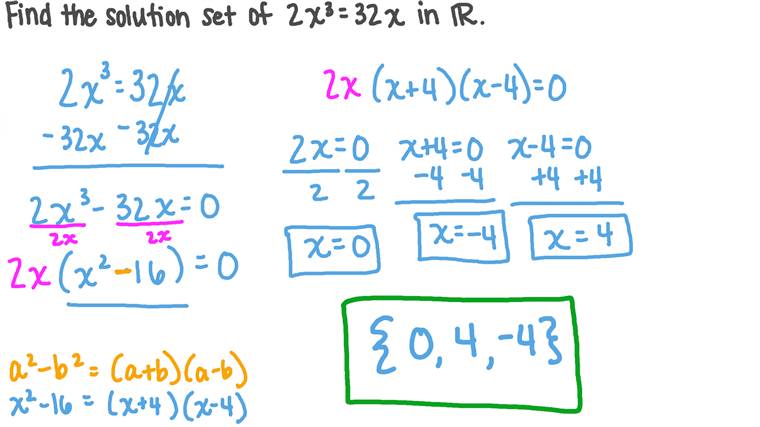 Find the solution set of 2x³=32x in ℝ.
2x³=32x
-32x -32x
2x³- 32x = 0
2x 2x
2x (x² -16) = 0
a²-b² = (a+b)(a-b)
x²-16 = (x+4)(x-4)
2x (x+4)(x-4)=0
2x=0 x+4=0 x-4=0
2 2 -4 -4 +4 +4
x=0 x=-4 x=4
{0, 4, -4}